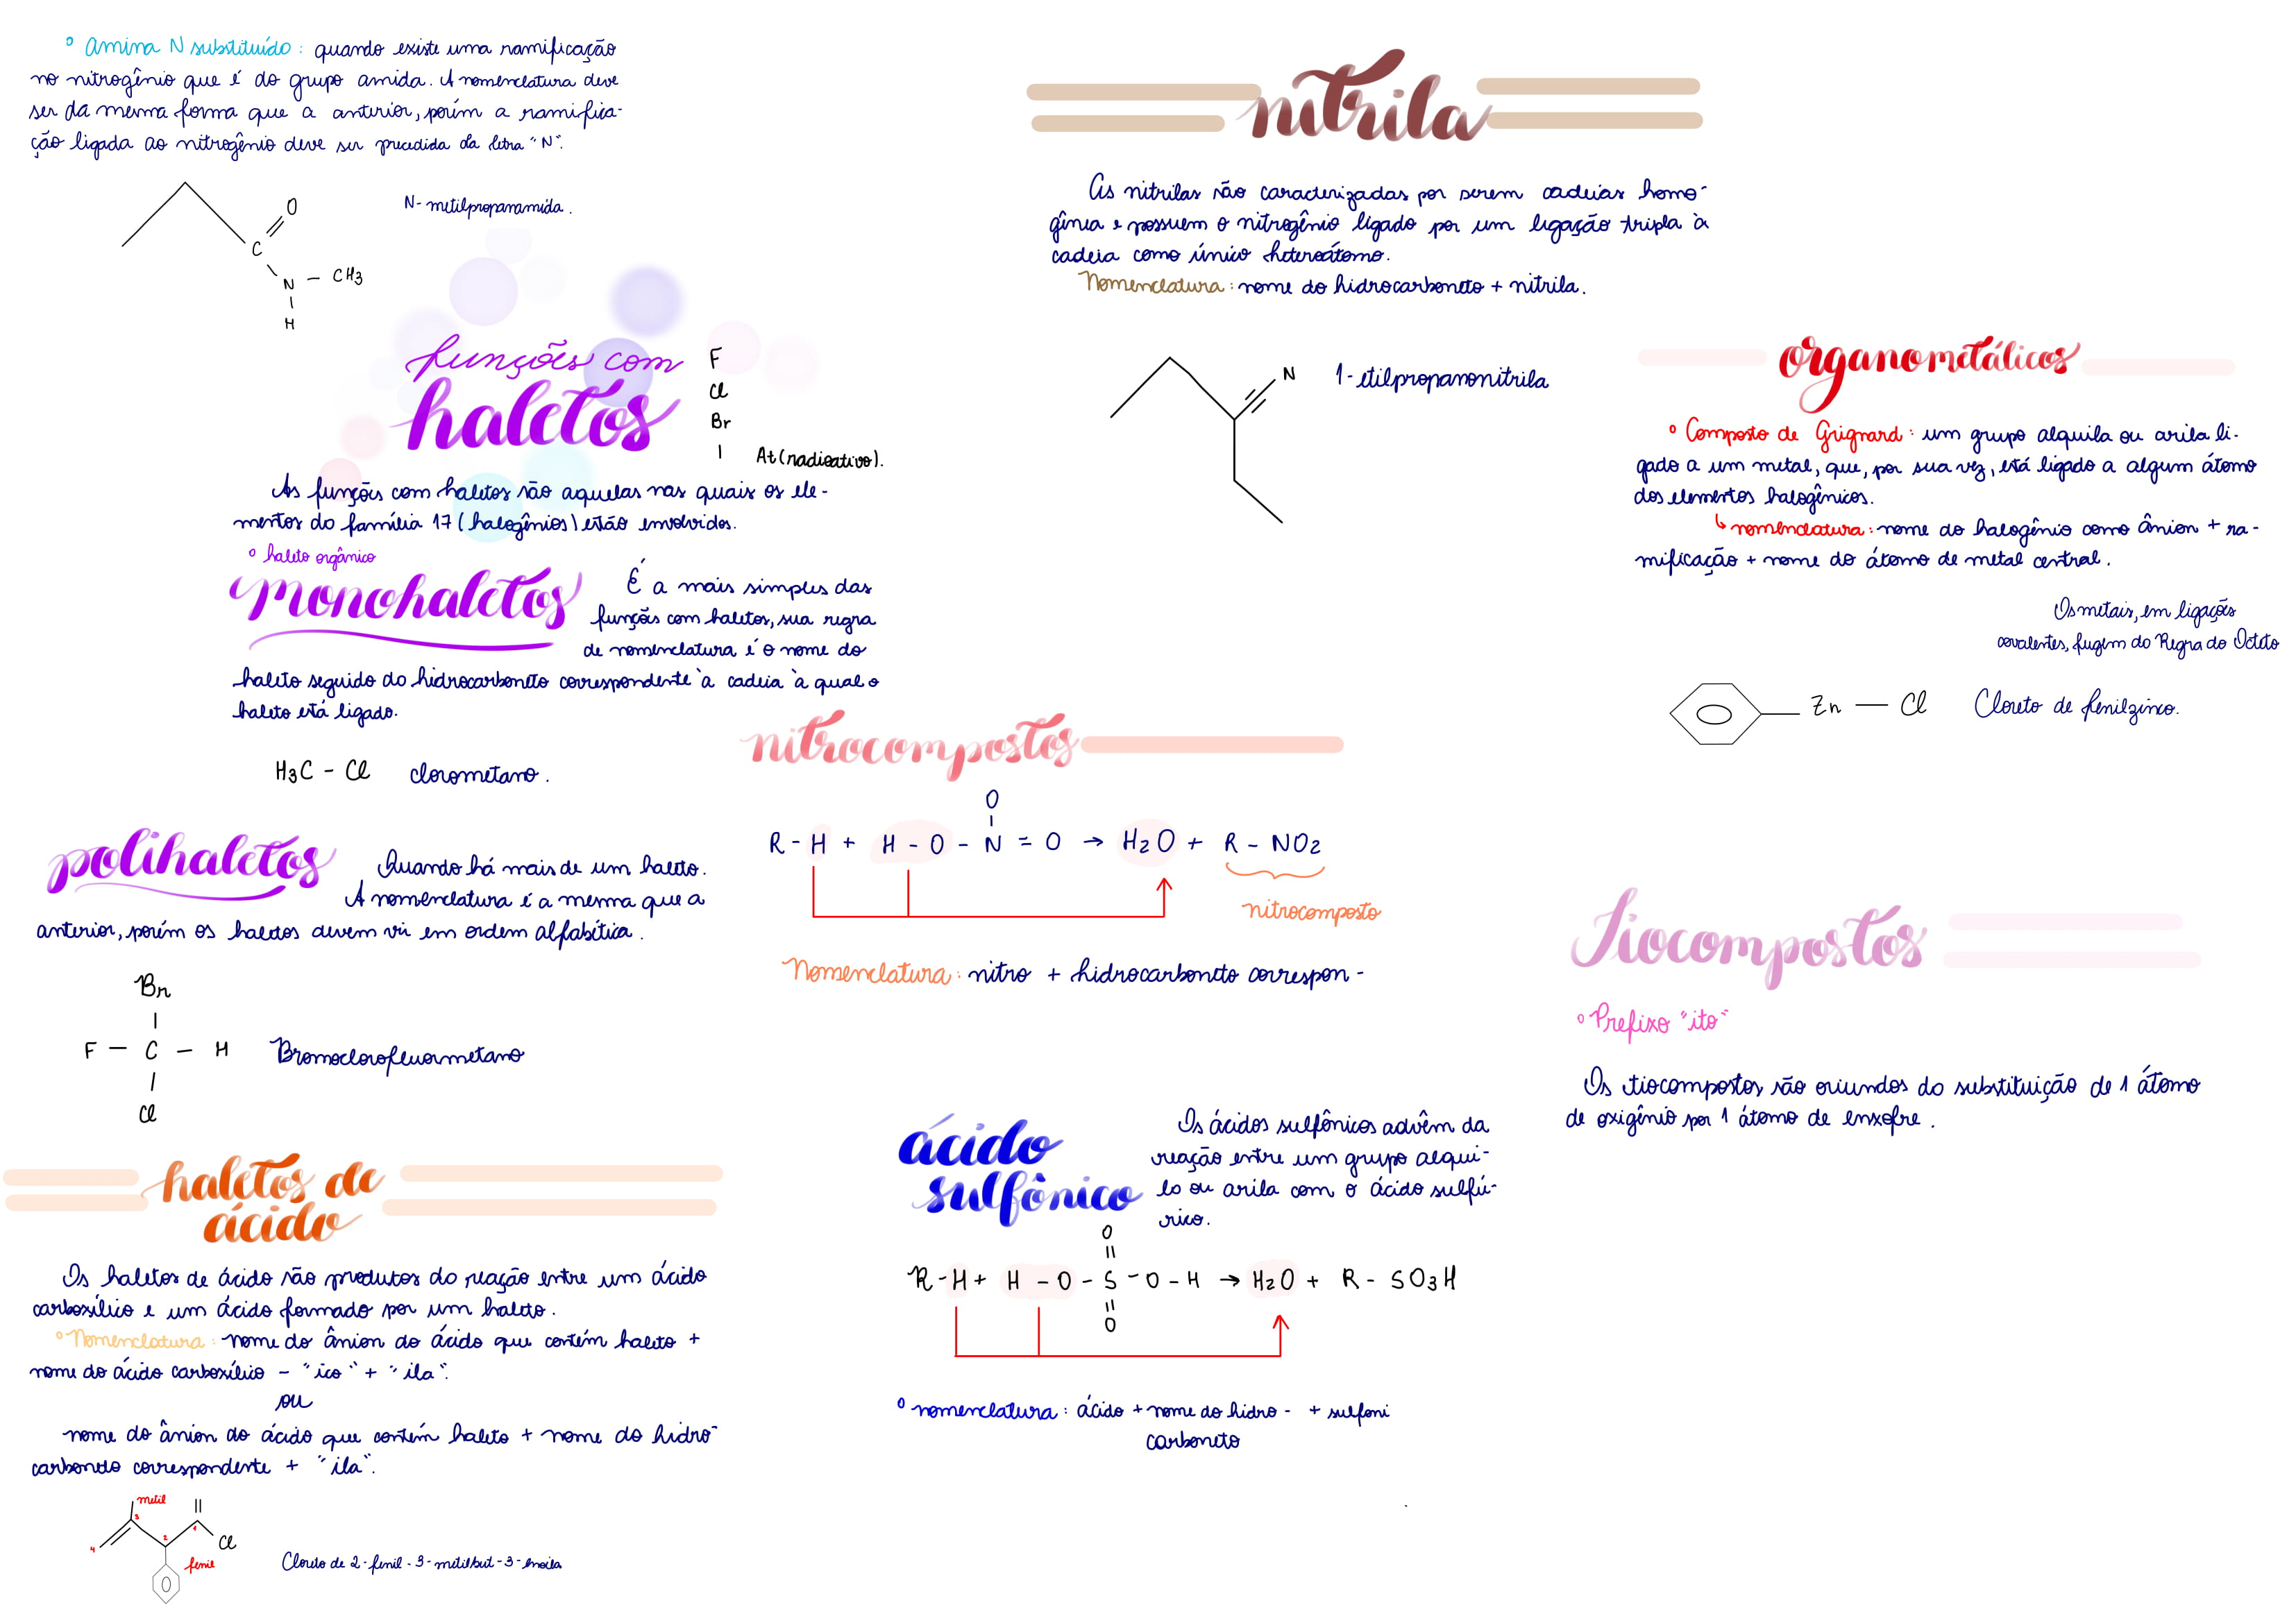 ° Amina N substituído: quando existe uma ramificação
no nitrogênio que é do grupo amida. A nomenclatura deve
ser da mesma forma que a anterior, porém a ramifica-
ção ligada ao nitrogênio deve ser precedida da letra "N".
N-metilpropanamida.
O
C
N - CH3
H
funções com
haletos
F
Cl
Br
I
At (radioativo).
As funções com haletos são aquelas nas quais os ele-
mentos da família 17 (halogênios) estão envolvidos.
° haleto orgânico
monohaletos
É a mais simples das
funções com haletos, sua regra
de nomenclatura é o nome do
haleto seguido do hidrocarboneto correspondente à cadeia à qual o
haleto está ligado.
H3C - Cl clorometano.
polihaletos
Quando há mais de um haleto.
A nomenclatura é a mesma que a
anterior, porém os haletos devem vir em ordem alfabética.
Br
F - C - H Bromoclorofluormetano
Cl
haletos de
ácido
Os haletos de ácido são produtos da reação entre um ácido
carboxílico e um ácido formado por um haleto.
° Nomenclatura: nome do ânion do ácido que contém haleto +
nome do ácido carboxílico - "ico" + "ila".
ou
nome do ânion do ácido que contém haleto + nome do hidro-
carboneto correspondente + "ila".
metil
3
4
2
1
Cl
fenil
Cloreto de 2-fenil-3-metilbut-3-enoila
nitrila
As nitrilas são caracterizadas por serem cadeias homo-
gênea e possuem o nitrogênio ligado por um ligação tripla à
cadeia como único heteroátomo.
Nomenclatura: nome do hidrocarboneto + nitrila.
N
1-etilpropanonitrila
nitrocompostos
O
R - H + H - O - N = O → H2O + R - NO2
nitrocomposto
Nomenclatura: nitro + hidrocarboneto correspon-
ácido
sulfônico
Os ácidos sulfônicos advêm da
reação entre um grupo alqui-
lo ou arila com o ácido sulfú-
rico.
O
R - H + H - O - S - O - H → H2O + R - SO3H
O
° nomenclatura: ácido + nome do hidro- + sulfoni
carboneto
organometálicos
° Composto de Grignard: um grupo alquila ou arila li-
gado a um metal, que, por sua vez, está ligado a algum átomo
dos elementos halogênicos.
↳ nomenclatura: nome do halogênio como ânion + ra-
mificação + nome do átomo de metal central.
Os metais, em ligações
covalentes, fugem da Regra do Octeto
Zn - Cl Cloreto de fenilzinco.
Tiocompostos
° Prefixo "ito"
Os tiocompostos são oriundos da substituição de 1 átomo
de oxigênio por 1 átomo de enxofre.